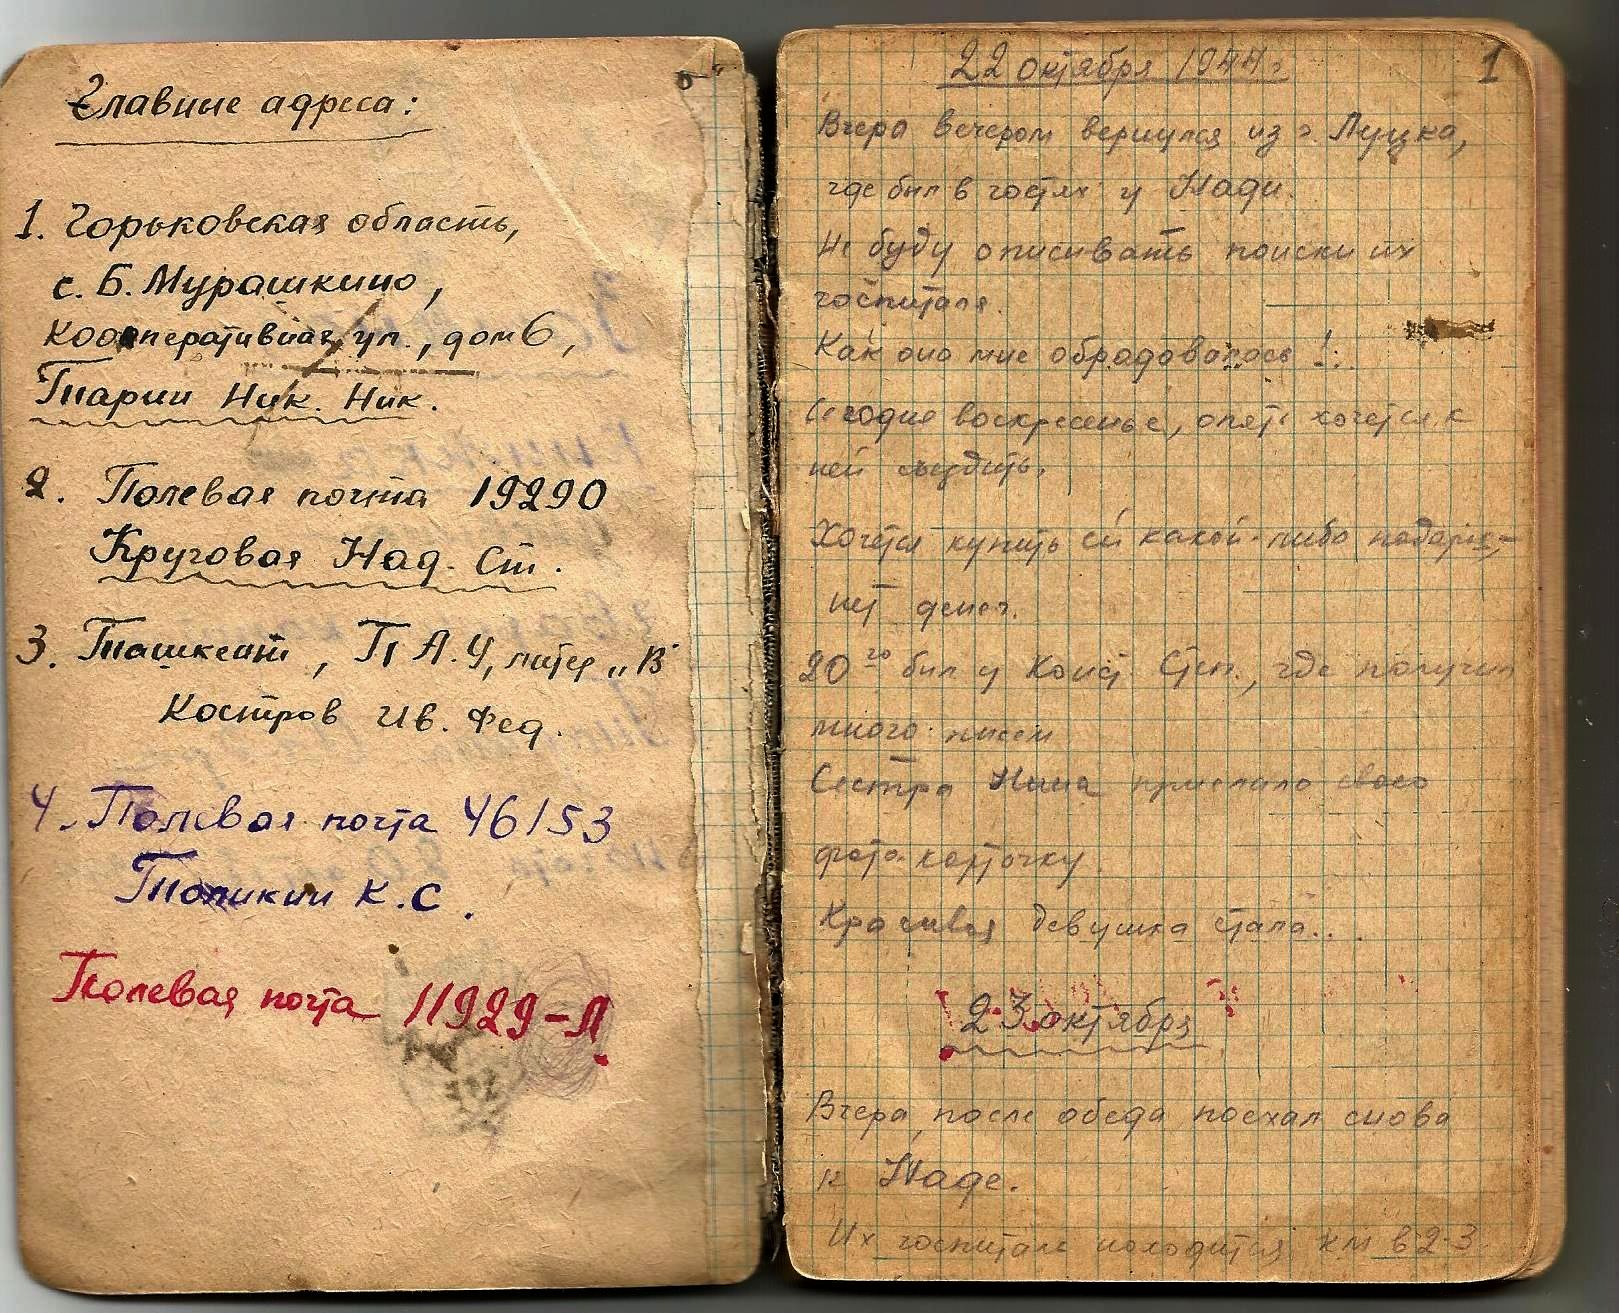 Главные адреса:
1. Горьковская область,
с. Б. Мурашкино,
Кооперативная ул., дом 6,
Тарин Ник. Ник.
2. Полевая почта 19290
Круговая Над. Ст.
3. Ташкент, П.А.У, литер „В"
Костров Ив. Фед.
4. Полевая почта 46153
Топикин К.С.
Полевая почта 11929-Л
22 октября 1944 г.
1
Вчера вечером вернулся из г. Луцка,
где был в гостях у Нади.
Не буду описывать поиски их
госпиталя.
Как она мне обрадовалась!..
Сегодня воскресенье, опять хочется к
ней
Хочется купить ей какой-либо подарок,-
нет денег.
20го был у Конст Степ., где получил
много писем
Сестра Нина прислала свою
фото-карточку.
Красивая девушка стала...
23 октября
Вчера, после обеда поехал снова
к Наде.
Их госпиталь находится км в 2-3